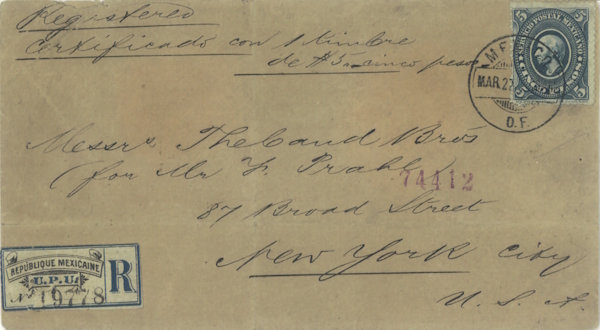 Registered
Certificado con 1 timbre
de $5. cinco pesos
SERVICIO POSTAL MEXICANO
5 5
5 5
MAR. 27
D.F.
Messrs. Thebaud Bros
(for Mr F. Prahl)
74412
87 Broad Street
New York City
U. S. A.
REPUBLIQUE MEXICAINE
U.P.U.
R
No. 19778